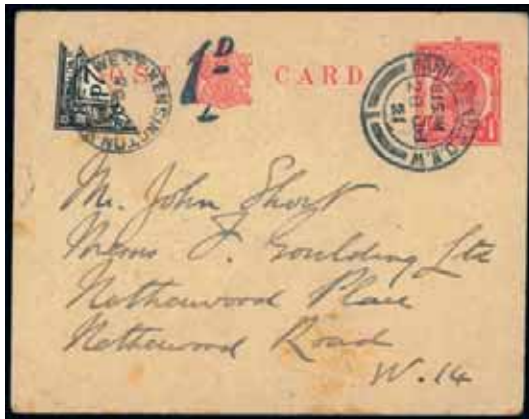 POST CARD
1D
WEST KENSINGTON
8.15 PM
21
Mr. John Short
Messrs F. Goulding Ltd
Netherwood Place
Netherwood Road
W.14